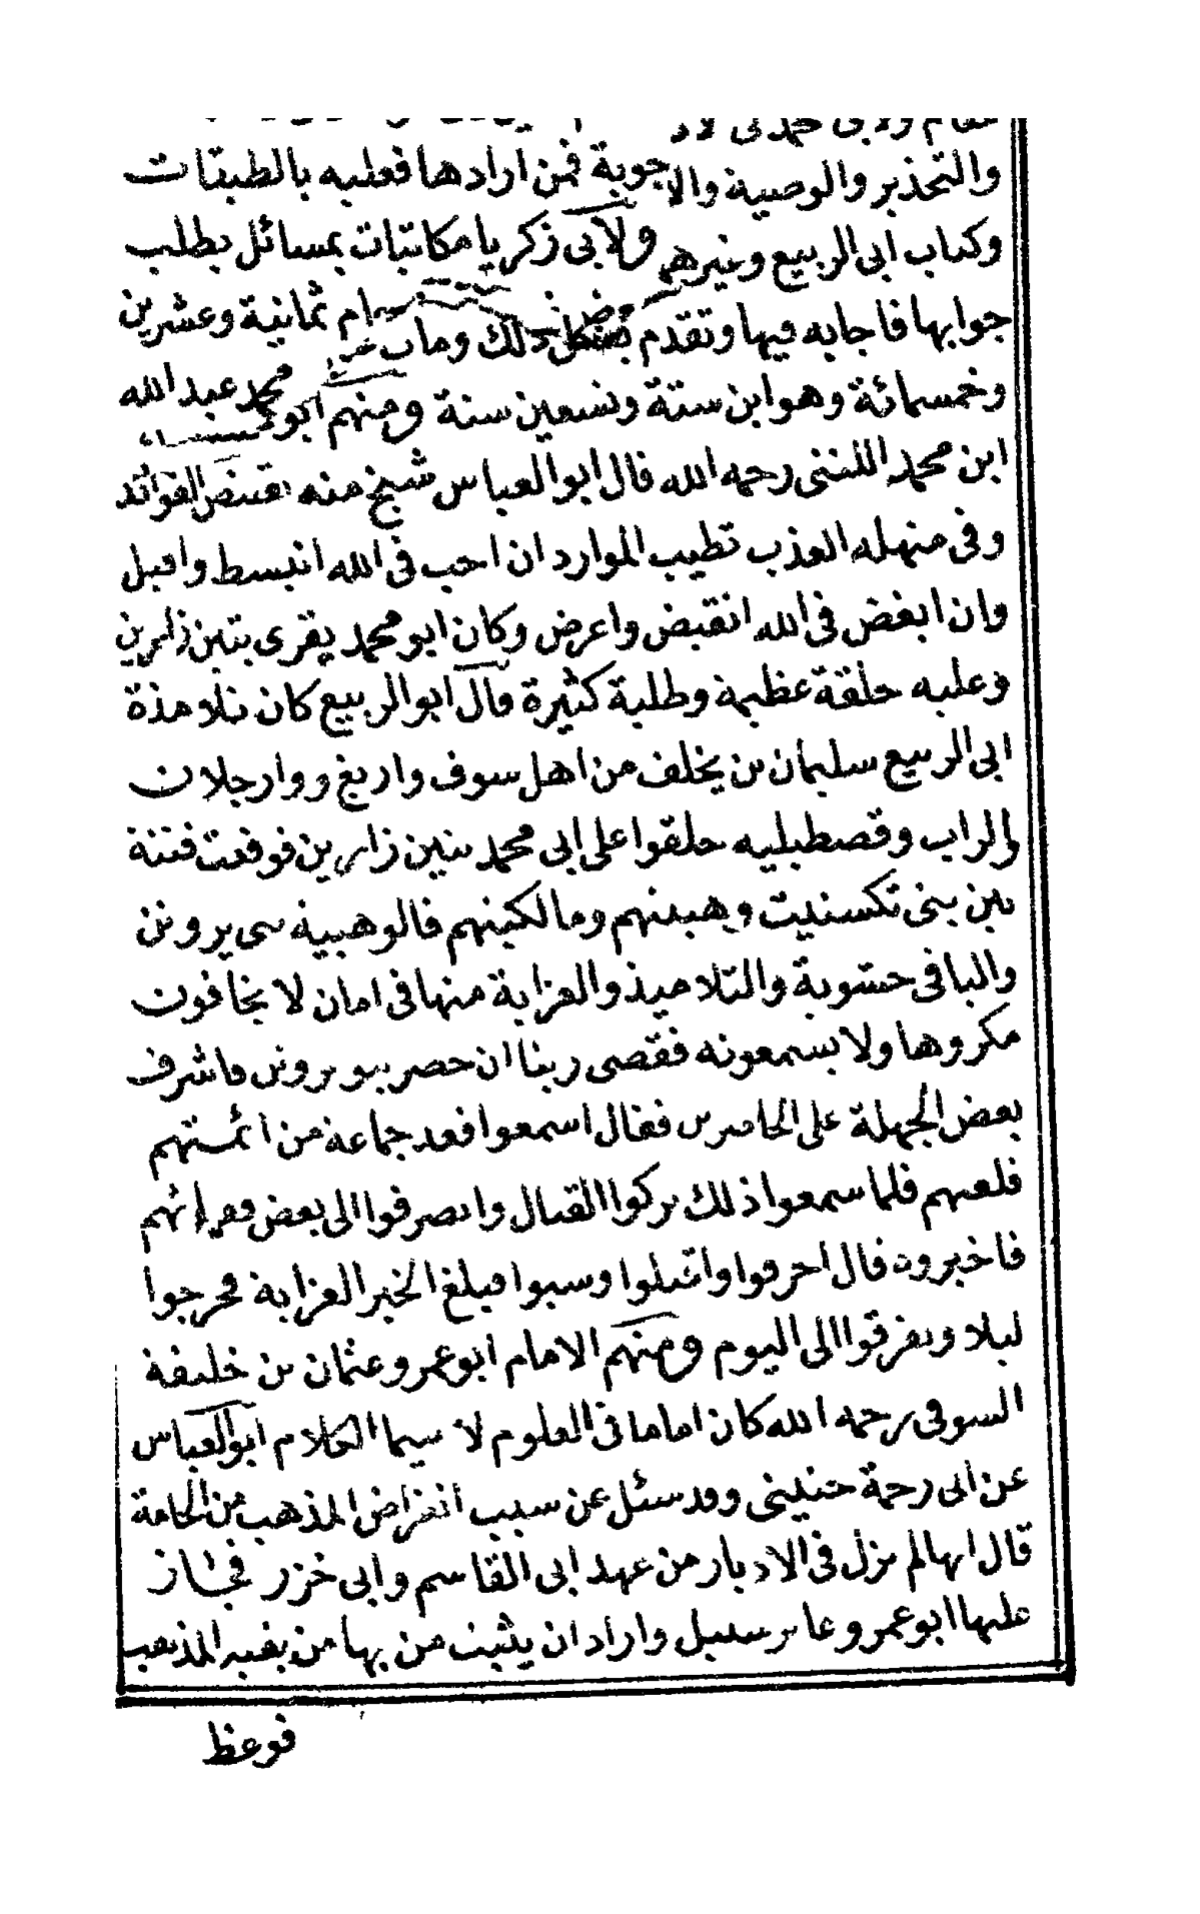 والتحذير والوصية والاجوبة فمن ارادها فعليه بالطبقات
وكتاب ابى الربيع وغيرهم ولابى زكريا مكاتبات بمسائل يطلب
جوابها فاجابه فيها وتقدم ذلك ومات عام ثمانية وعشرين
وخمسمائة وهو ابن ستة وتسعين سنة ومنهم ابو محمد عبد الله
ابن محمد اللنتى رحمه الله قال ابو العباس شيخ منه تقتنص الفوائد
وفى منهله العذب تطيب الموارد ان احب فى الله انبسط واقبل
وان ابغض فى الله انقبض واعرض وكان ابو محمد يقرى بتين زارين
وعليه حلقة عظيمة وطلبة كثيرة قال ابو الربيع كان تلامذة
ابى الربيع سليمان بن يخلف من اهل سوف واريغ ووارجلان
والراب وقصطيليه حلقوا على ابى محمد بتين زارين فوقعت فتنة
بين بنى تكسنيت وهبيتهم ومالكيتهم فالوهبية بنى يروتن
والباقى حشوية والتلاميذ والعزابة منها فى امان لا يخافون
مكروها ولا يسمعونه فقضى ربنا ان حصر بنو يروتن فاشرف
بعض الجهلة على الحاصرين فقال اسمعوا فعد جماعة من ائمتهم
فلعنهم فلما سمعوا ذلك تركوا القتال وانصرفوا الى بعض فقرائهم
فاخبروه قال احرقوا واقتلوا وسبوا فبلغ الخبر العزابة فخرجوا
ليلا وتفرقوا الى اليوم ومنهم الامام ابو عمرو عثمان بن خليفة
السوفى رحمه الله كان اماما فى العلوم لا سيما الكلام ابو العباس
عن ابى رحمة حنينى وقد سئل عن سبب انقراض المذهب من الحامة
قال انها لم تزل فى الادبار من عهد ابى القاسم وابى خزر فجاز
عليها ابو عمرو عابر سبيل واراد ان يثبت من بها من بقية المذهب
فوعظ